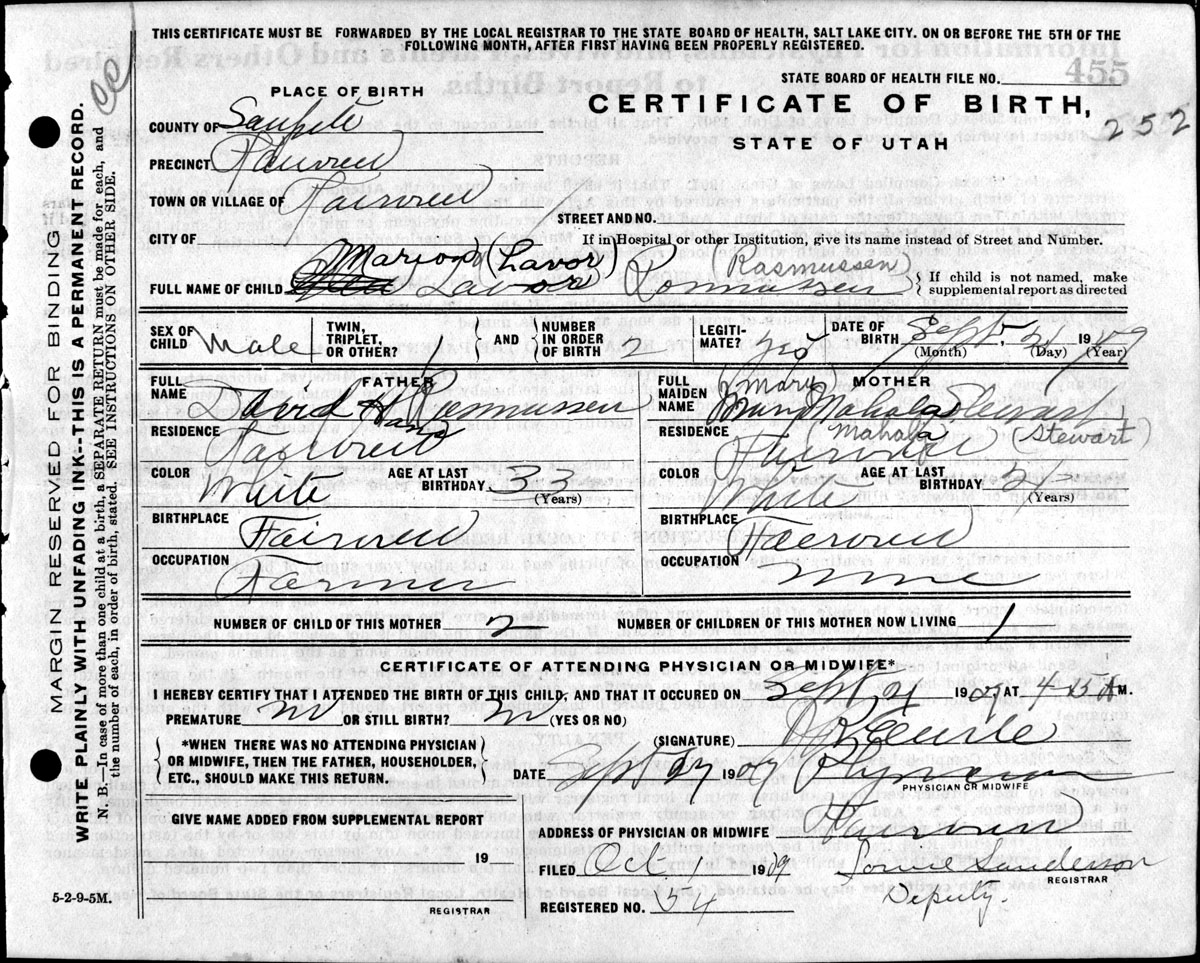 THIS CERTIFICATE MUST BE FORWARDED BY THE LOCAL REGISTRAR TO THE STATE BOARD OF HEALTH, SALT LAKE CITY. ON OR BEFORE THE 5TH OF THE
FOLLOWING MONTH, AFTER FIRST HAVING BEEN PROPERLY REGISTERED.
STATE BOARD OF HEALTH FILE NO. 455
PLACE OF BIRTH
CERTIFICATE OF BIRTH,
252
STATE OF UTAH
COUNTY OF Sanpete
PRECINCT Fairview
TOWN OR VILLAGE OF Fairview
STREET AND NO.
CITY OF
If in Hospital or other Institution, give its name instead of Street and Number.
Marion (Lavor) (Rasmussen)
FULL NAME OF CHILD Lavor Rasmussen
If child is not named, make
supplemental report as directed
SEX OF CHILD Male
TWIN, TRIPLET, OR OTHER?
AND
NUMBER IN ORDER OF BIRTH 2
LEGITIMATE? yes
DATE OF BIRTH Sept, 21 1909
(Month) (Day) (Year)
FATHER
FULL NAME David H Rasmussen
RESIDENCE Fairview
COLOR White
AGE AT LAST BIRTHDAY 33
(Years)
BIRTHPLACE Fairview
OCCUPATION Farmer
MOTHER
(Mary)
FULL MAIDEN NAME Mahala Stewart
(Mahala) (Stewart)
RESIDENCE Fairview
COLOR White
AGE AT LAST BIRTHDAY
(Years)
BIRTHPLACE Fairview
OCCUPATION none
NUMBER OF CHILD OF THIS MOTHER 2
NUMBER OF CHILDREN OF THIS MOTHER NOW LIVING 1
CERTIFICATE OF ATTENDING PHYSICIAN OR MIDWIFE*
I HEREBY CERTIFY THAT I ATTENDED THE BIRTH OF THIS CHILD, AND THAT IT OCCURED ON Sept 21 1909 AT 4 A M.
PREMATURE no OR STILL BIRTH? no (YES OR NO)
(SIGNATURE)
*WHEN THERE WAS NO ATTENDING PHYSICIAN
OR MIDWIFE, THEN THE FATHER, HOUSEHOLDER,
ETC., SHOULD MAKE THIS RETURN.
DATE Sept 27 1909 Physician
PHYSICIAN OR MIDWIFE
GIVE NAME ADDED FROM SUPPLEMENTAL REPORT
19
REGISTRAR
ADDRESS OF PHYSICIAN OR MIDWIFE Fairview
FILED Oct 1 1909 Louise Sanderson
REGISTRAR
REGISTERED NO. 54 Deputy.
5-2-9-5M.
MARGIN RESERVED FOR BINDING
WRITE PLAINLY WITH UNFADING INK--THIS IS A PERMANENT RECORD.
N. B.—In case of more than one child at a birth, a SEPARATE RETURN must be made for each, and
the number of each, in order of birth, stated. SEE INSTRUCTIONS ON OTHER SIDE.